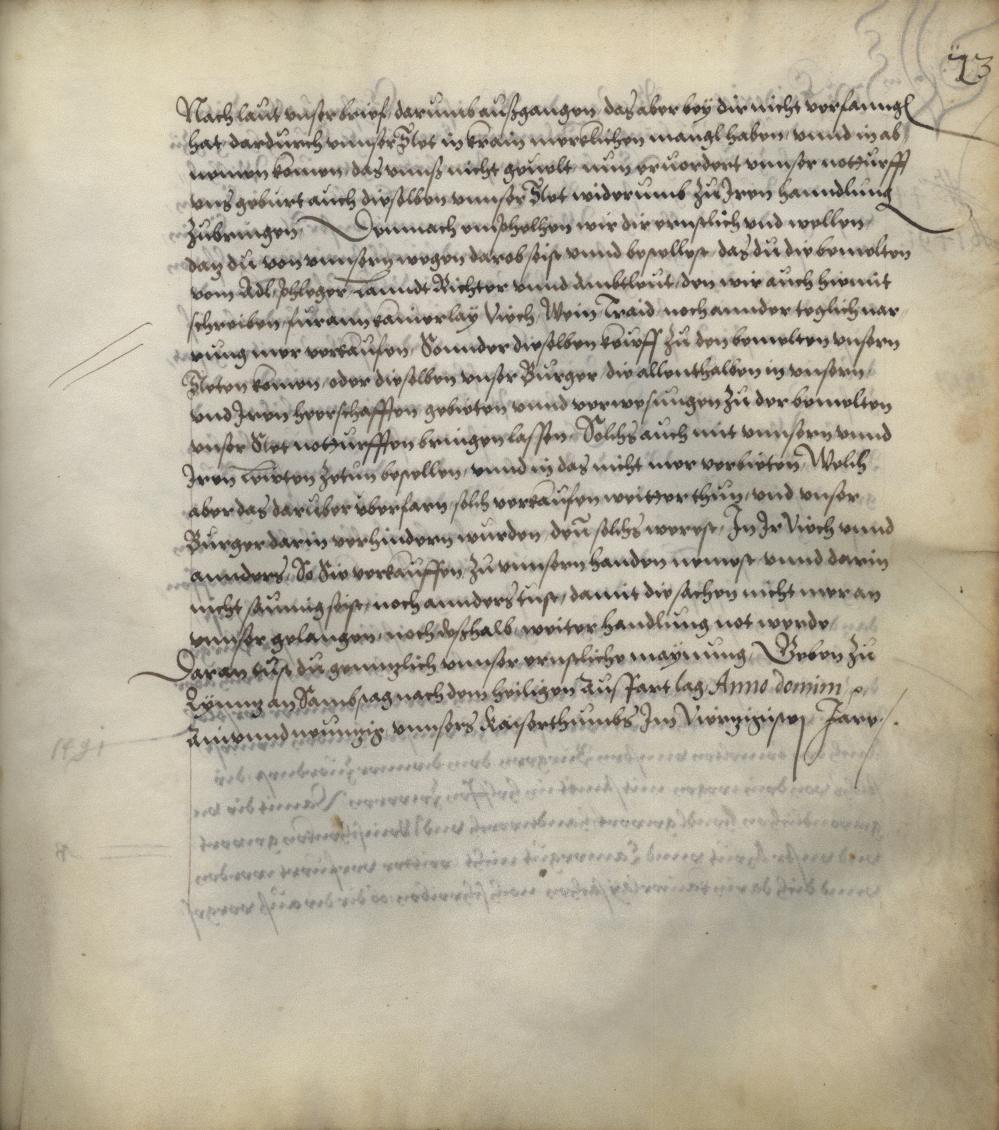 23
Nach laut vnser brief, darumb außgangen, das aber bey dir nicht verfanngkh
hat, dardurch vnnser Stet in Krain mercklichen mangl haben, vnnd in ab
nemen komen, das vnnß nicht geuelt, nun eruordert vnnser notturfft
vns geburt auch dieselben vnnser Stet widerumb zu Iren hanndlung
zubringen, Demnach emphelhen wir dir ernstlich vnd wellen
daz du von vnnsern wegen darob seist vnnd bestellest, das du die bemelten
vom Adl, Phleger Lanndt Richter vnnd Ambtleut, den wir auch hiemit
schreiben, füran kainerlay Viech, Wein Traid, noch annder teglich nar
rung mer verkaufen, Sonnder dieselben keuff zu den bemelten vnsern
Steten komen, oder dieselben vnser Burger, die allenthalben in vnsern,
vnd Iren herrschafften gebieten vnnd verwesungen zu der bemelten
vnser Stet notturfften bringen lassen, Solchs auch mit vnnsern vnnd
Iren Leuten zetun bestellen, vnnd in das nicht mer verbieten, Welch
aber das daruber vberfarn, solch verkaufen weitter thun, vnd vnser
Burger darin verhindern wurden, den solchs werest, In Ir Viech vnnd
annders, So Sie verkauffen, zu vnnsern handen nemest, vnnd darin
nicht saumig seist, noch annders tust, damit die sachen nicht mer an
vnnser gelangen, noch deßhalb weiter handlung not werde,
Daran tust du genntzlich vnnser ernstliche maynung, Geben zu
Lynntz an Sambstag nach dem heiligen Auffart tag Anno domini p.
Ainvnndneuntzig vnnsers Kaiserthumbs Im Viertzigisten Jare.
1491